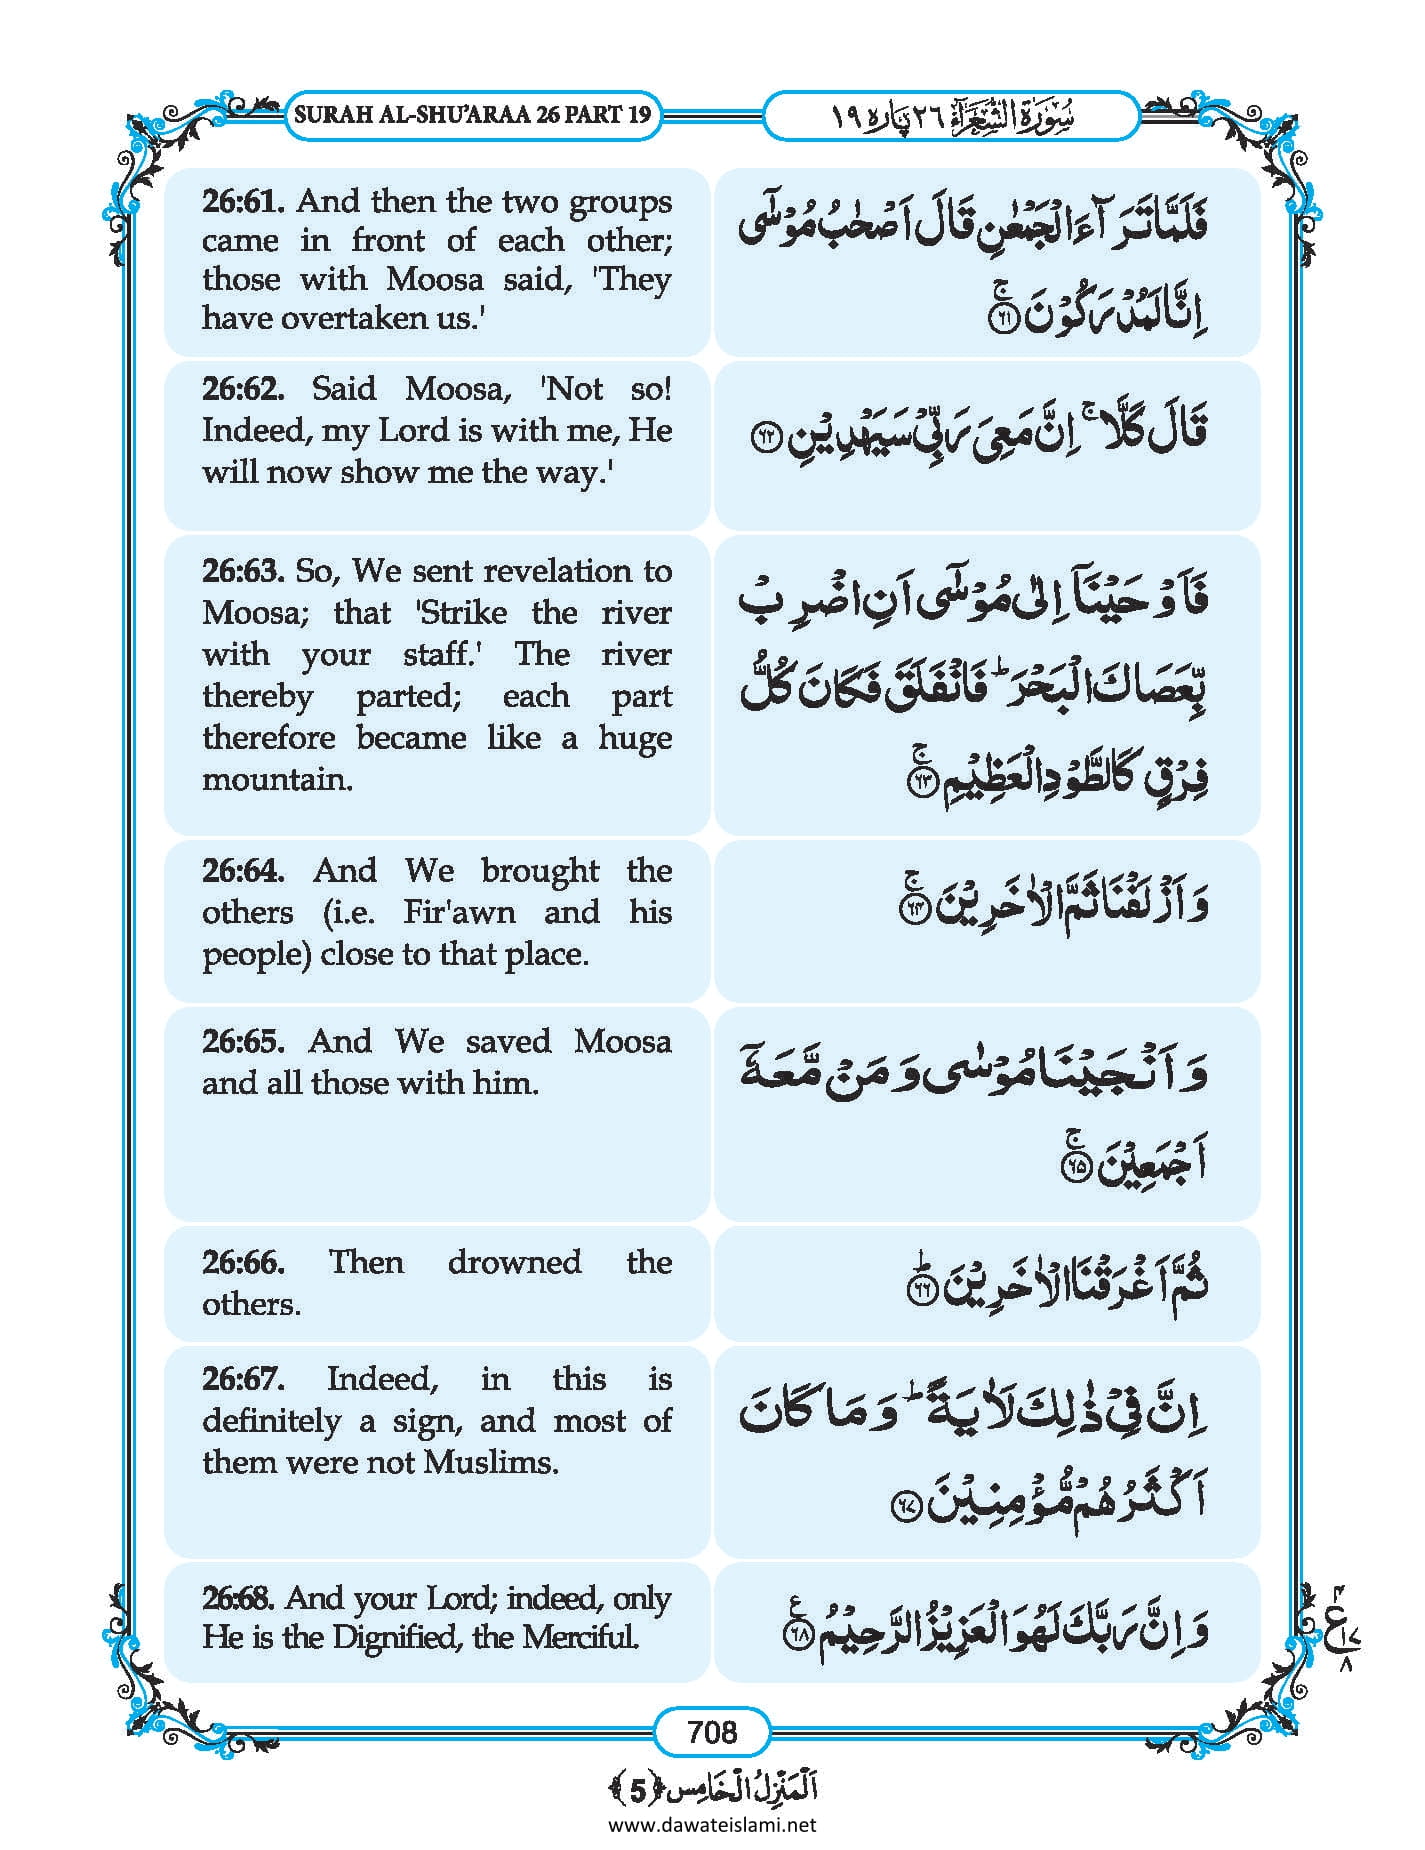 SURAH AL-SHU’ARAA 26 PART 19
سُوْرَةُ الشُّعَرَآءِ ٢٦ پاره ١٩
26:61. And then the two groups
came in front of each other;
those with Moosa said, 'They
have overtaken us.'
فَلَمَّا تَرَآءَ الْجَمْعٰنِ قَالَ اَصْحٰبُ مُوْسٰۤى
اِنَّا لَمُدْرَكُوْنَۚ﴿۶۱﴾
26:62. Said Moosa, 'Not so!
Indeed, my Lord is with me, He
will now show me the way.'
قَالَ كَلَّاۚ اِنَّ مَعِیَ رَبِّیْ سَیَهْدِیْنِ﴿۶۲﴾
26:63. So, We sent revelation to
Moosa; that 'Strike the river
with your staff.' The river
thereby parted; each part
therefore became like a huge
mountain.
فَاَوْحَیْنَاۤ اِلٰى مُوْسٰۤى اَنِ اضْرِبْ
بِّعَصَاكَ الْبَحْرَؕ فَانْفَلَقَ فَكَانَ كُلُّ
فِرْقٍ كَالطَّوْدِ الْعَظِیْمِۚ﴿۶۳﴾
26:64. And We brought the
others (i.e. Fir'awn and his
people) close to that place.
وَ اَزْلَفْنَا ثَمَّ الْاٰخَرِیْنَۚ﴿۶۴﴾
26:65. And We saved Moosa
and all those with him.
وَ اَنْجَیْنَا مُوْسٰى وَ مَنْ مَّعَهٗۤ
اَجْمَعِیْنَۚ﴿۶۵﴾
26:66. Then drowned the
others.
ثُمَّ اَغْرَقْنَا الْاٰخَرِیْنَؕ﴿۶۶﴾
26:67. Indeed, in this is
definitely a sign, and most of
them were not Muslims.
اِنَّ فِیْ ذٰلِكَ لَاٰیَةًؕ وَ مَا كَانَ
اَكْثَرُهُمْ مُّؤْمِنِیْنَ﴿۶۷﴾
26:68. And your Lord; indeed, only
He is the Dignified, the Merciful.
وَ اِنَّ رَبَّكَ لَهُوَ الْعَزِیْزُ الرَّحِیْمُ۠﴿۶۸﴾
۴
ع
۱۷
۸
708
اَلْمَنْزِلُ الْخَامِس ﴿5﴾
www.dawateislami.net